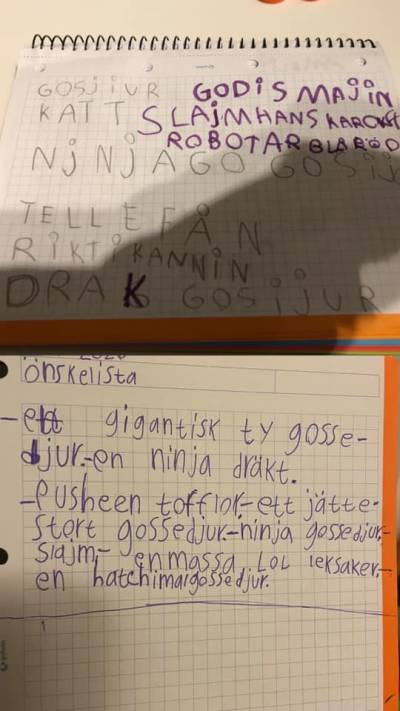 GOSJIUR GODIS MAJIN
KATT SLAJMHANS KAROKE
ROBOTAR BLÅ RÖD
NJNJAGO GOSIJ
TELLEFÅN
RIKTIKANNIN
DRAK GOSIJUR
önskelista
-ett gigantisk ty gosse-
djur.-en ninja dräkt.
-Pusheen tofflor-ett jätte-
stort gossedjur-ninja gossedjur,-
slajm,- en massa LOL leksaker,-
en hatchimal gossedjur.